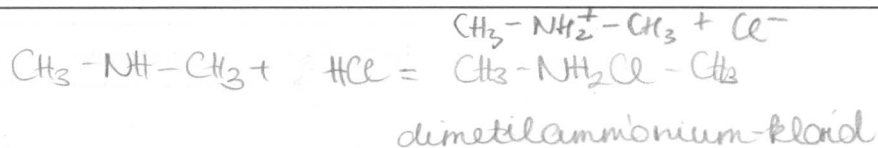 CH₃-NH₂⁺-CH₃ + Cl⁻
CH₃-NH-CH₃ + HCl = CH₃-NH₂Cl-CH₃
dimetilammónium-klorid